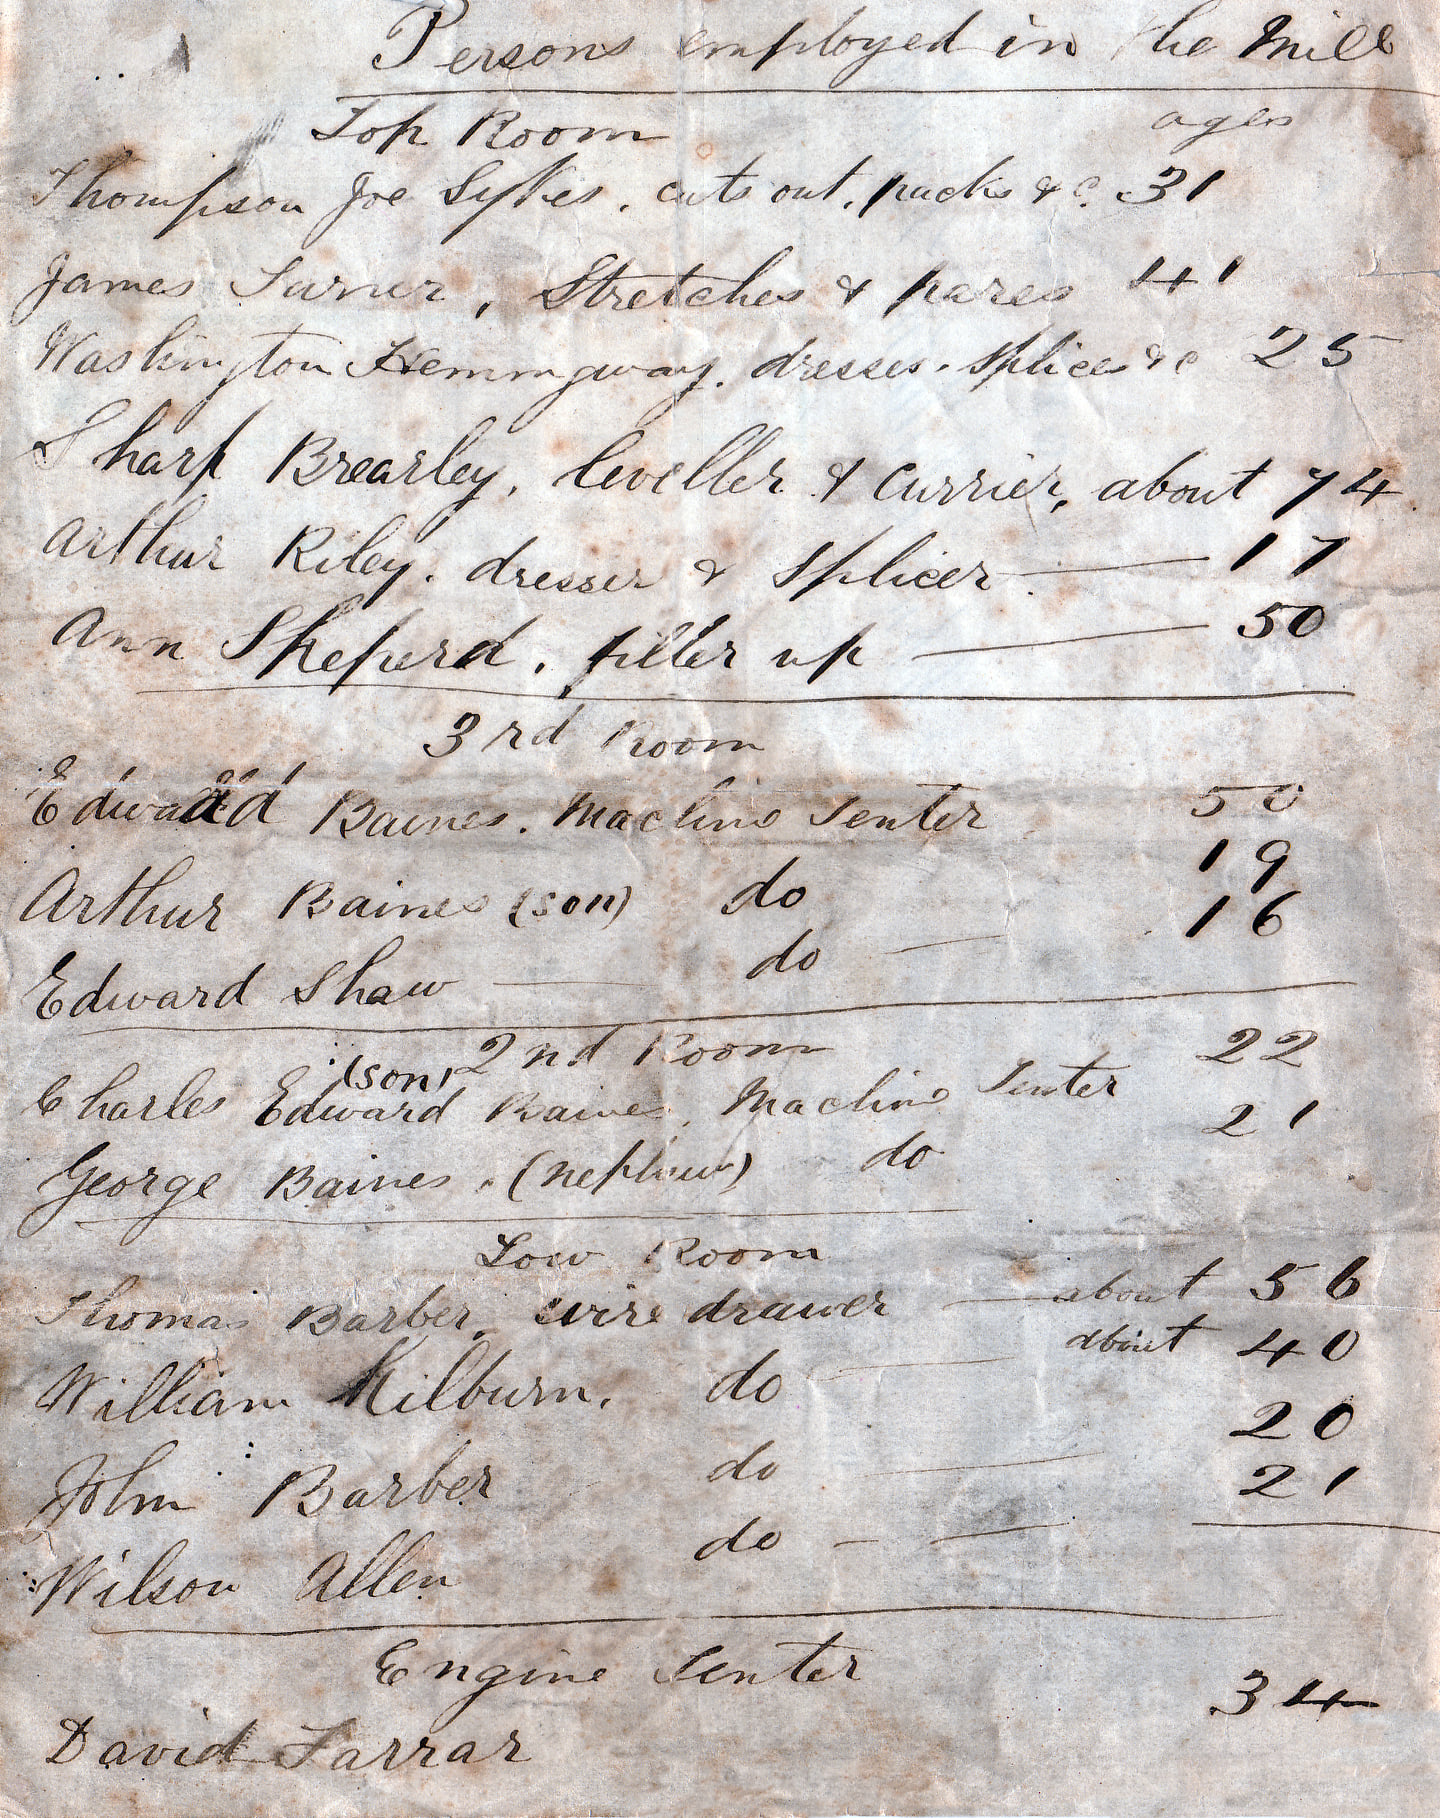 Persons employed in the Mill
Top Room ages
Thompson Joe Sykes, cuts out, packs &c. 31
James Turner, Stretches & pares 41
Washington Hemmingway. dresses. splices &c 25
Sharp Brearley, leveller & Currier, about 74
Arthur Riley. dresser & Splicer — 17
Ann Sheperd, filler up — 50
3rd Room
Edward Baines. Machine Tenter 50
Arthur Baines (son) do 19
Edward Shaw — do — 16
2nd Room
(son)
Charles Edward Baines, Machine Tenter 22
George Baines. (nephew) do 21
Low Room
Thomas Barber, wire drawer — about 56
William Kilburn. do — about 40
John Barber do — 20
Wilson Allen do — — 21
Engine Tenter
David Farrar 34